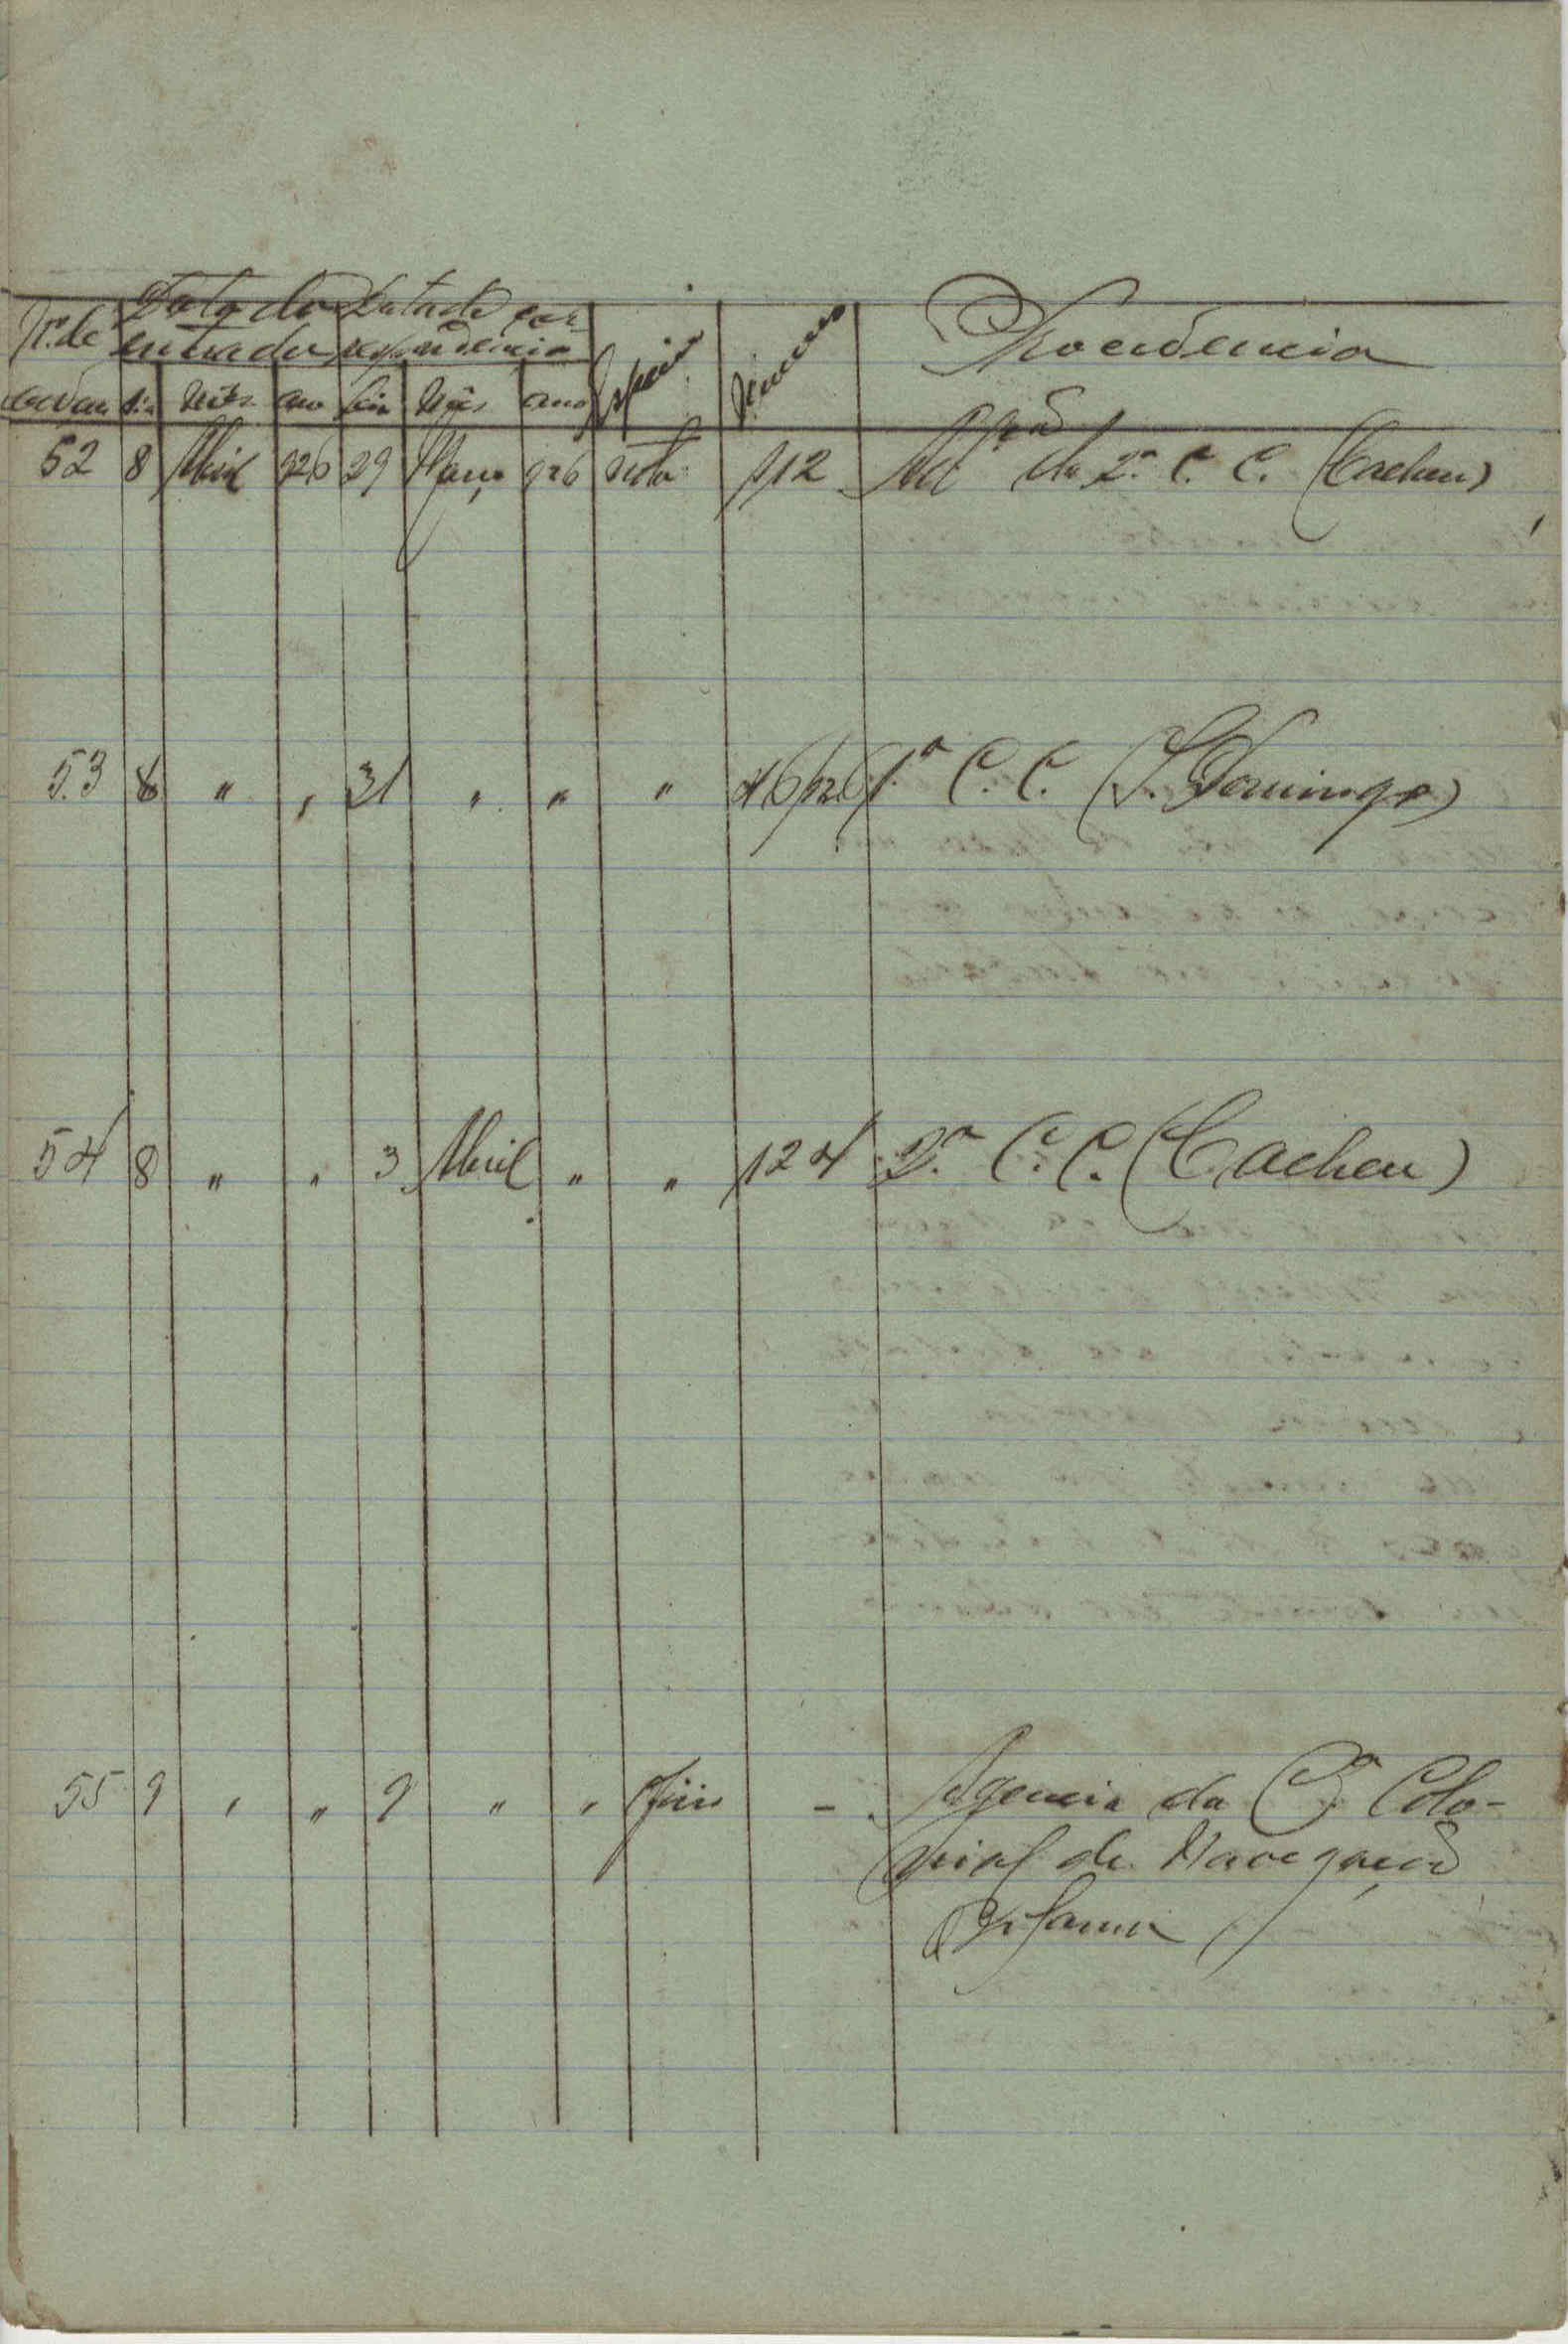 Nº. de Data da Data da cor- Procedencia
entrada respondencia Especie Numeros
ordem dia mês ano dia Mês ano
52 8 Abril 926 29 Março 926 nota 112 da 2.ª C. C. (Cacheu)
53 8 " " 31 " " " 46/926 1.ª C. C. (S. Domingos)
54 8 " " 3 Abril " " 124 2.ª C. C. (Cacheu)
55 9 " " 9 " " - Agencia da Cª Colo-
nial de Navegação
Bolama